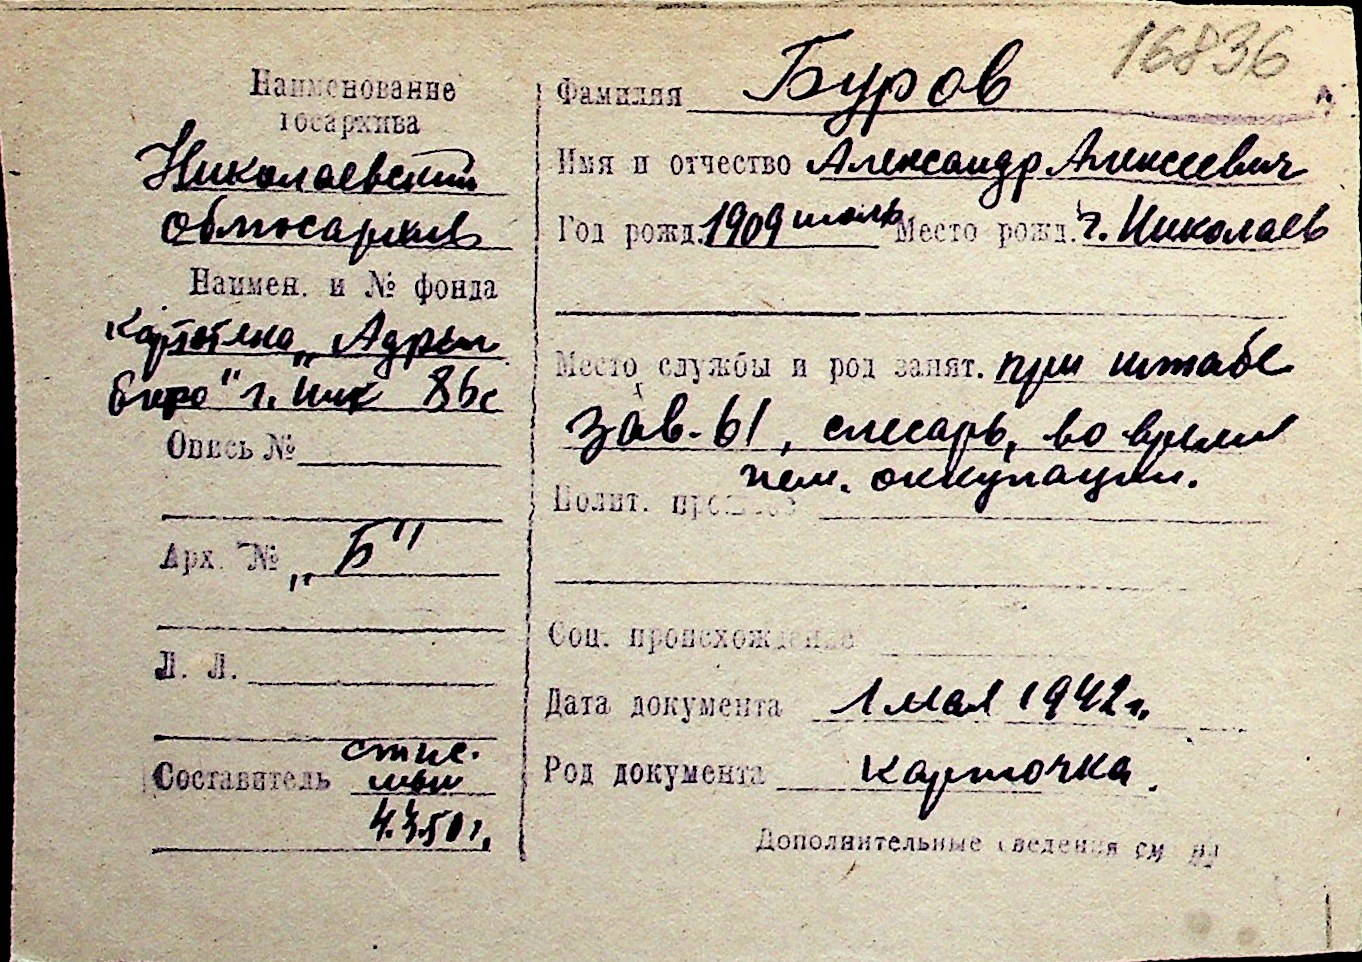 16836
Наименование
Госархива
Николаевский
Облгосархив
Наимен. и № фонда
картотека „Адресн
бюро" г. Ник 86с
Опись №
Арх. № „Б"
Л. Л.
Составитель
4.3.50 г.
Фамилия Буров
Имя и отчество Александр Алексеевич
Год рожд. 1909 июль Место рожд. г. Николаев
Место службы и род занят. при штабе
зав. 61, слесарь, во время
нем. оккупации.
Полит. прошлое
Соц. происхождение
Дата документа 1 мая 1942 г.
Род документа карточка.
Дополнительные сведения см на